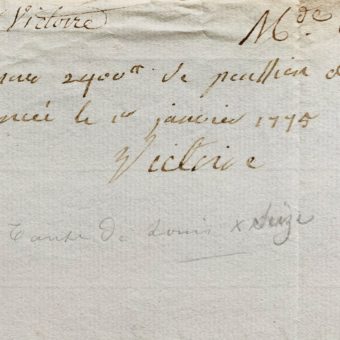 Victoire Mde
2400tt de penssion
le 1er janvier 1775
Victoire
tante de Louis x Seize